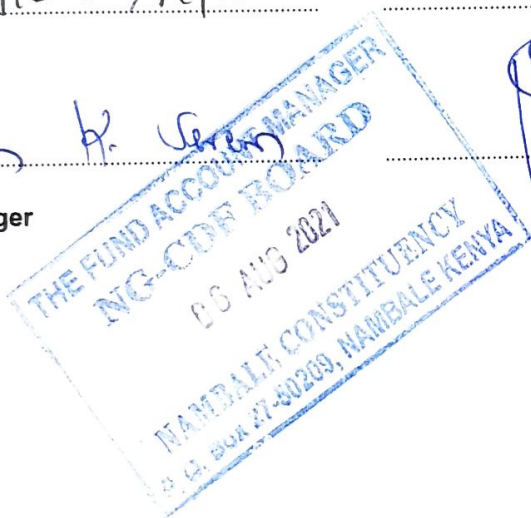 K.
ger
THE FUND ACCOUNT MANAGER
NG-CDF BOARD
06 AUG 2021
NAMBALE CONSTITUENCY
P. O. Box 27-50209, NAMBALE KENYA